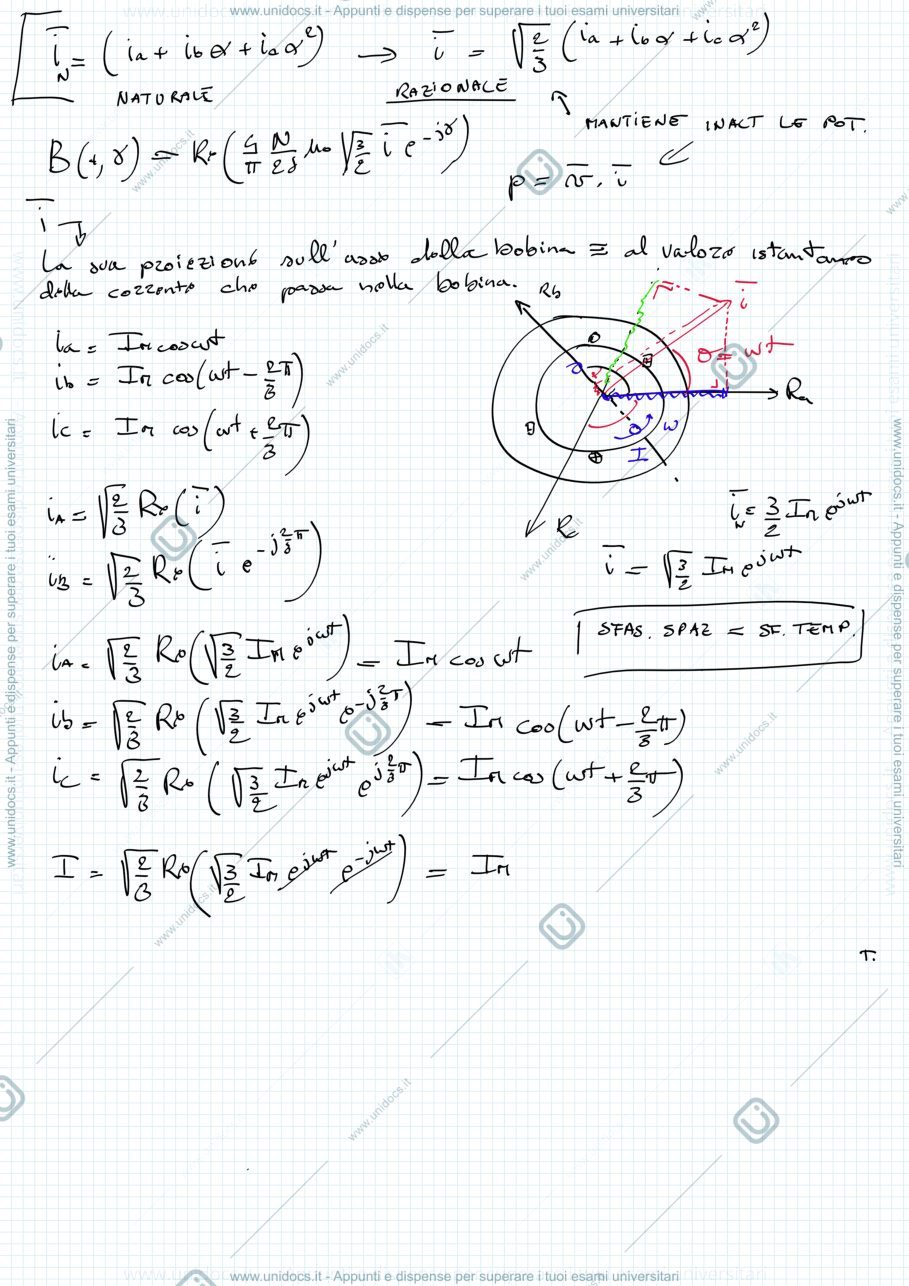 www.unidocs.it - Appunti e dispense per superare i tuoi esami universitari
i̅_N = (ia + ib α + ic α²) → i̅ = √(2/3) (ia + ib α + ic α²)
NATURALE
RAZIONALE
MANTIENE INALT LE POT.
B(t,γ) = Re(4/π N/2δ μo √(2/3) i̅ e^-jγ)
p = v̅ · i̅
i̅
La sua proiezione sull'asse della bobina ≡ al valore istantaneo
della corrente che passa nella bobina.
ia = IM cosωt
ib = IM cos(ωt - 2π/3)
ic = IM cos(ωt + 2π/3)
Rb
i̅
θ = ωt
Ra
θ
ω
I
Rc
iA = √(2/3) Re(i̅)
iB = √(2/3) Re(i̅ e^-j2/3π)
i̅_N = 3/2 IM e^jωt
i̅ = √(3/2) IM e^jωt
SFAS. SPAZ = SF. TEMP.
iA = √(2/3) Re(√(3/2) IM e^jωt) = IM cos ωt
ib = √(2/3) Re(√(3/2) IM e^jωt e^-j2/3π) = IM cos(ωt - 2/3π)
ic = √(2/3) Re(√(3/2) IM e^jωt e^j2/3π) = IM cos(ωt + 2/3π)
I = √(2/3) Re(√(3/2) IM e^jωt e^-jωt) = IM
T.
www.unidocs.it - Appunti e dispense per superare i tuoi esami universitari